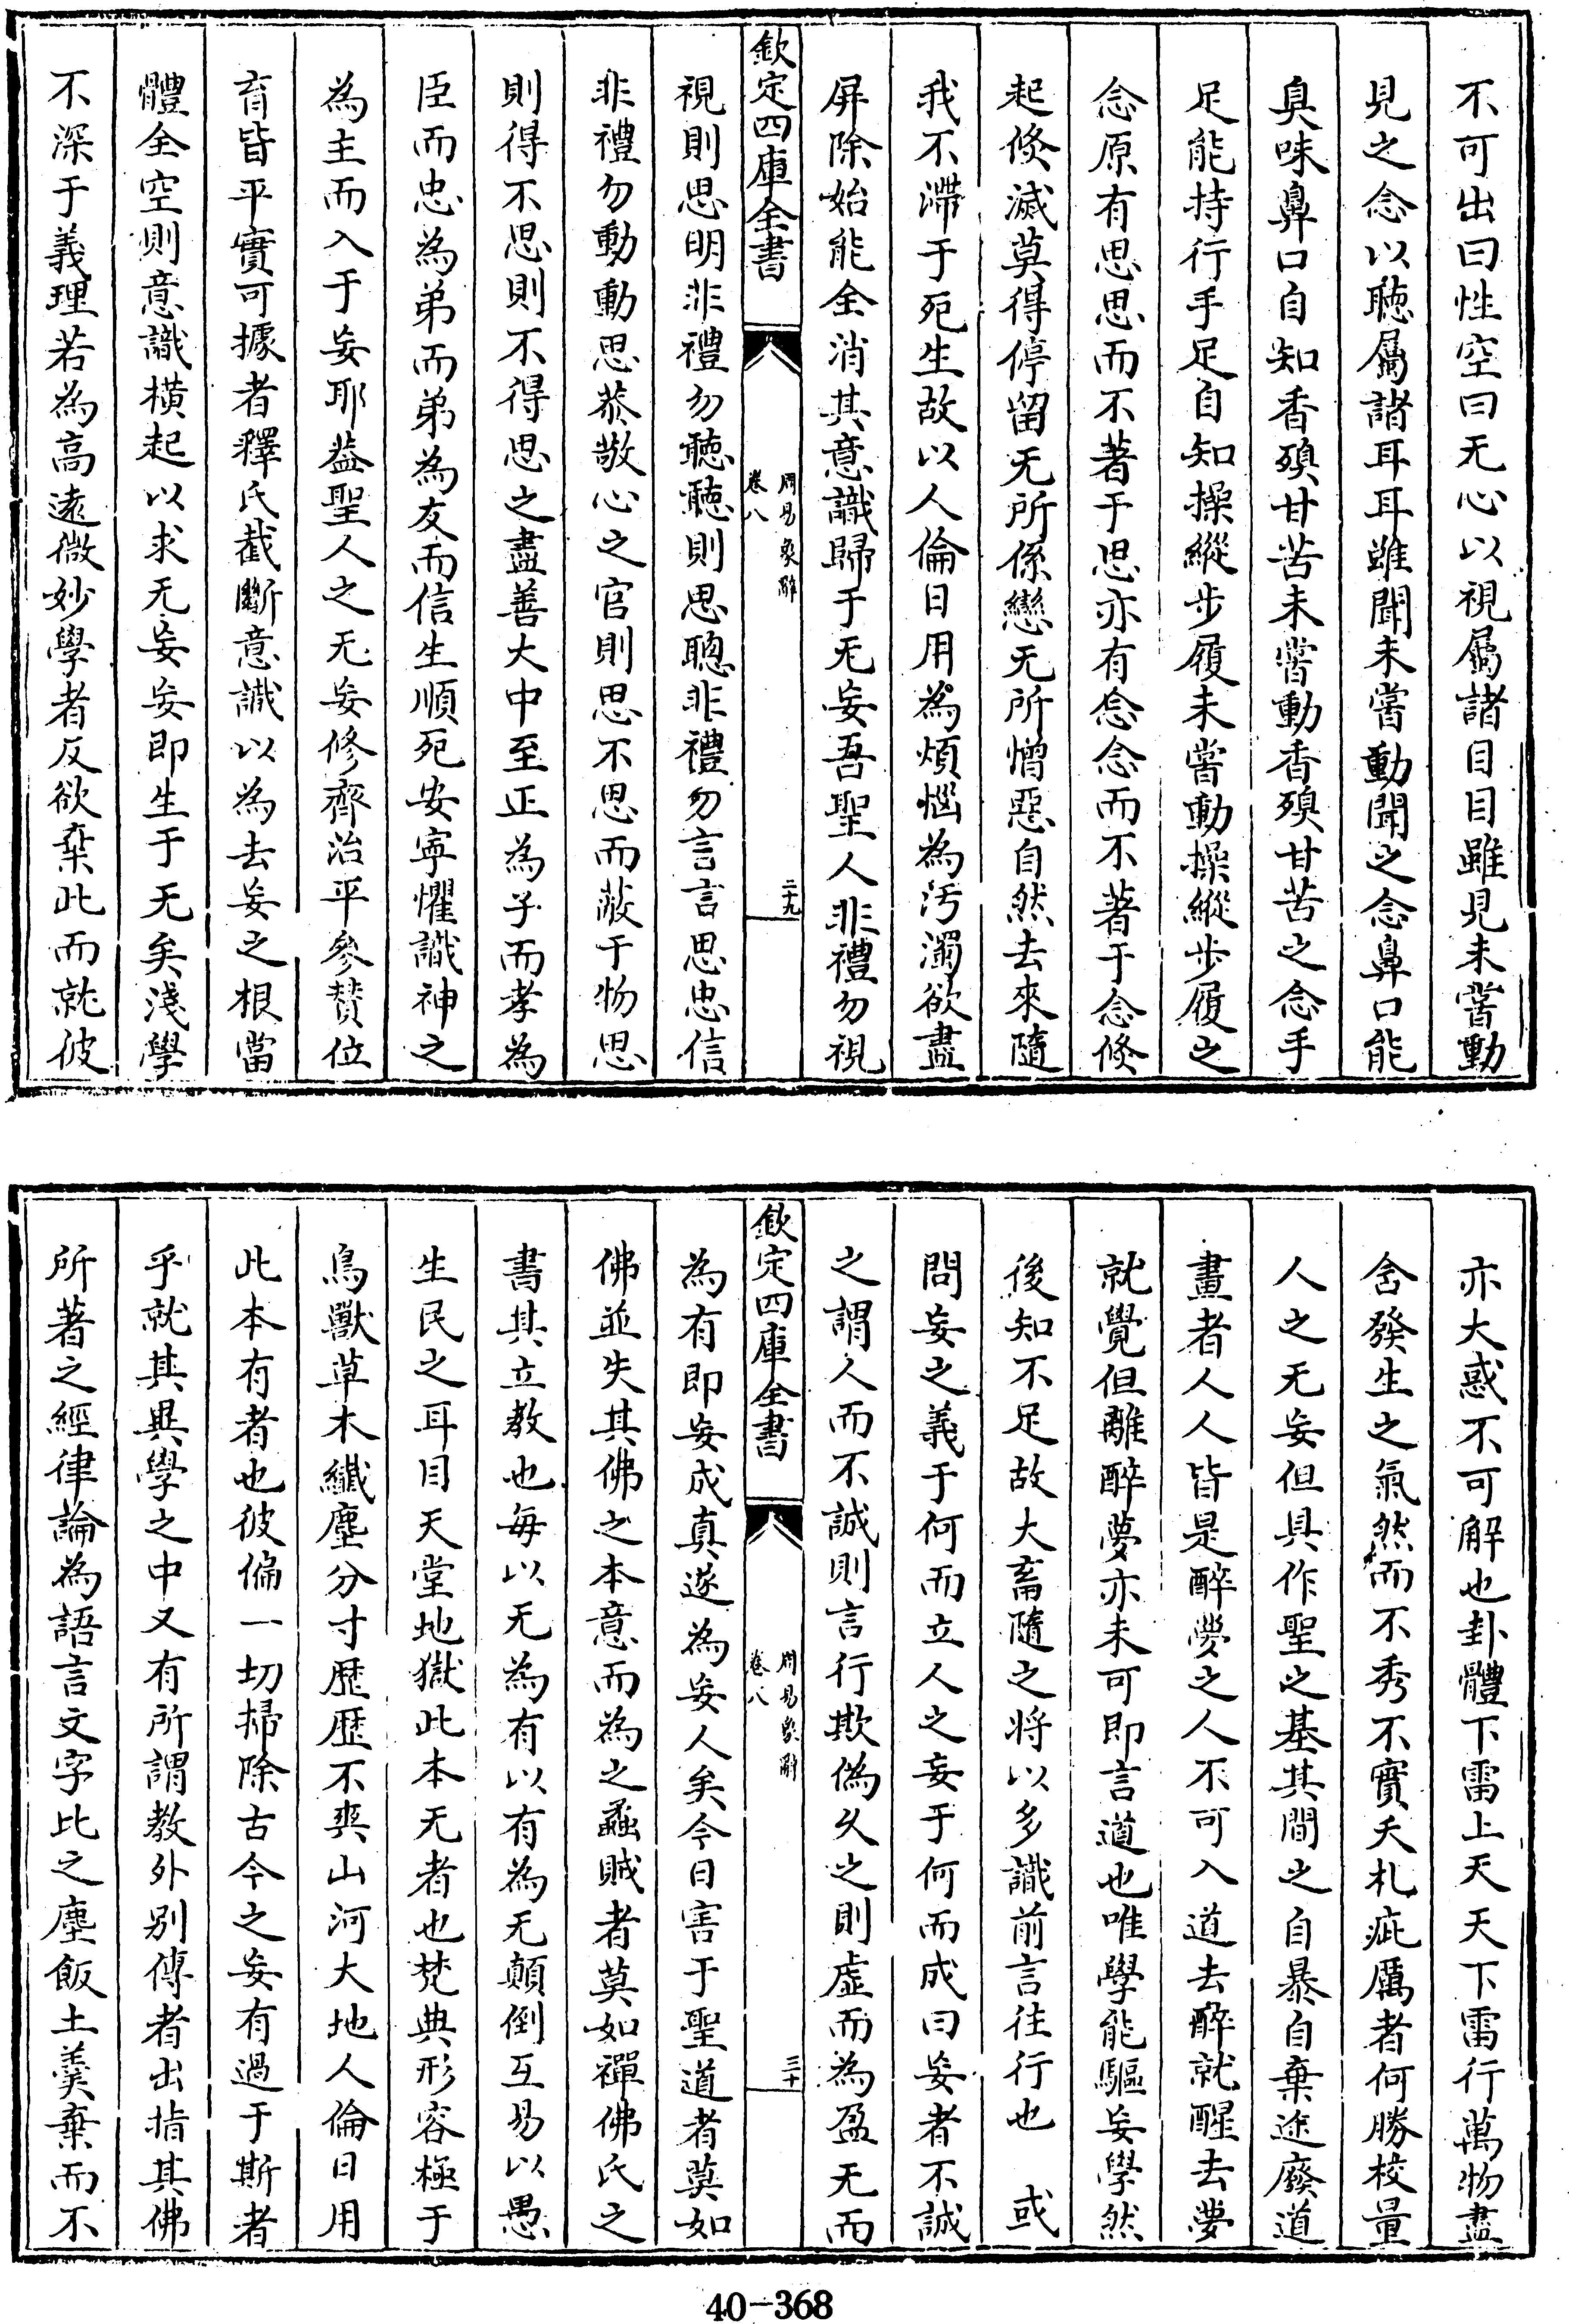 不可出曰性空曰无心以視屬諸目目雖見未嘗動
見之念以聴屬諸耳耳雖聞未嘗動聞之念鼻口能
臭味鼻口自知香殠甘苦未嘗動香殠甘苦之念手
足能持行手足自知操縱步履未嘗動操縱步履之
念原有思思而不著于思亦有念念而不著于念倐
起倐滅莫得停留无所係戀无所憎惡自然去來隨
我不滯于死生故以人倫日用為煩惱為汚濁欲盡
屏除始能全消其意識歸于无妄吾聖人非禮勿視
欽定四庫全書
周易象辭
卷八
二十九
視則思明非禮勿聽聽則思聰非禮勿言言思忠信
非禮勿動動思恭敬心之官則思不思而蔽于物思
則得不思則不得思之盡善大中至正為子而孝為
臣而忠為弟而弟為友而信生順死安寧懼識神之
為主而入于妄耶葢聖人之无妄修齊治平參賛位
育皆平實可據者釋氏截斷意識以為去妄之根當
體全空則意識橫起以求无妄妄即生于无矣淺學
不深于義理若為高遠微妙學者反欲棄此而就彼
亦大惑不可解也卦體下雷上天天下雷行萬物盡
含發生之氣然而不秀不實夭札疵厲者何勝校量
人之无妄但具作聖之基其間之自暴自棄途廢道
畫者人人皆是醉夢之人不可入道去醉就醒去夢
就覺但離醉夢亦未可即言道也唯學能驅妄學然
後知不足故大畜隨之将以多識前言往行也 或
問妄之義于何而立人之妄于何而成曰妄者不誠
之謂人而不誠則言行欺偽久之則虛而為盈无而
欽定四庫全書
周易象辭
卷八
三十
為有即妄成真遂為妄人矣今日害于聖道者莫如
佛並失其佛之本意而為之蟊賊者莫如禪佛氏之
書其立教也每以无為有以有為无顛倒互易以愚
生民之耳目天堂地獄此本无者也梵典形容極于
鳥獸草木纎塵分寸歴歴不爽山河大地人倫日用
此本有者也彼偏一切掃除古今之妄有過于斯者
乎就其異學之中又有所謂教外别傳者出指其佛
所著之經律論為語言文字比之塵飯土羮棄而不
40-368